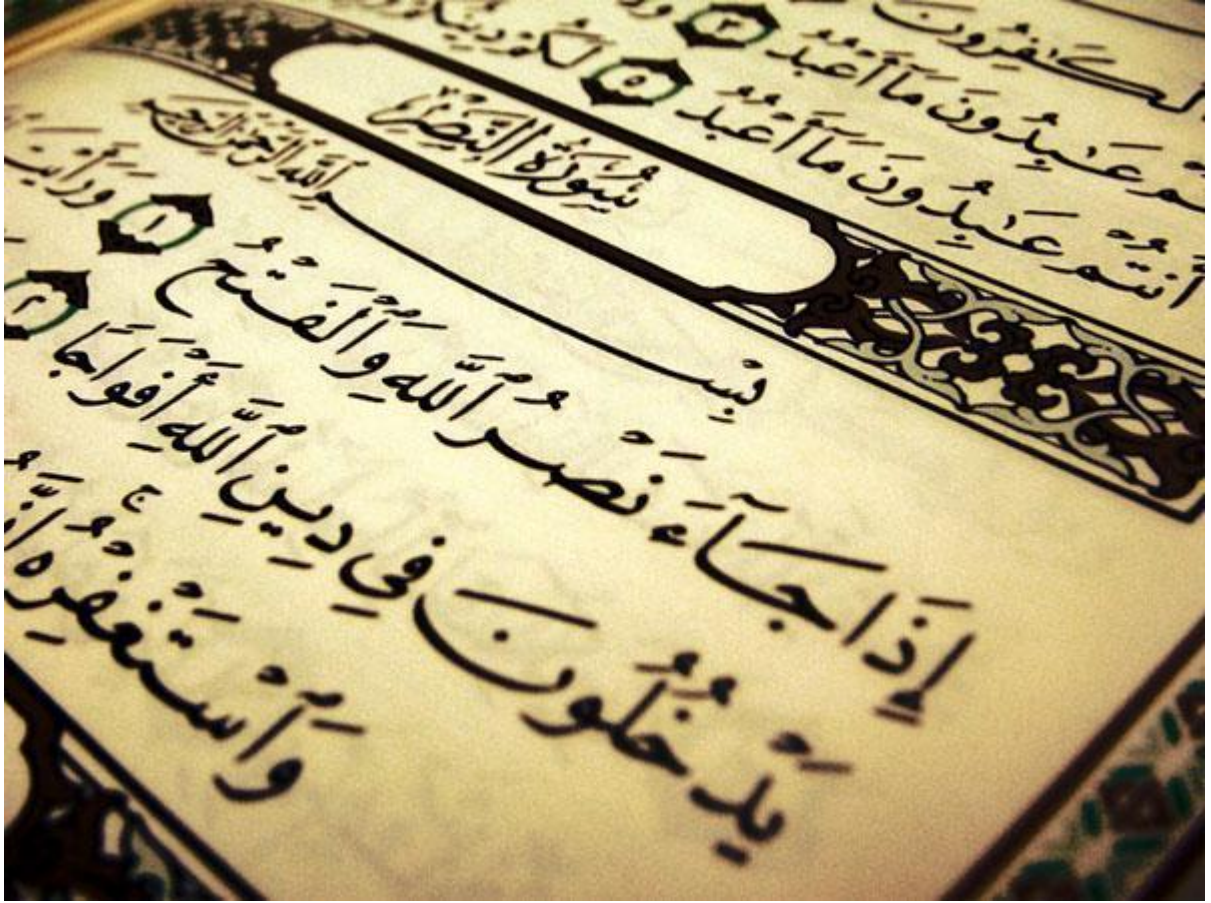 ٱلْكَـٰفِرُونَ
مَآ أَعْبُدُ ٣
أَنتُمْ عَـٰبِدُونَ مَآ أَعْبُدُ ٥ لَكُمْ دِينُكُمْ
سُورَةُ النَّصْرِ
بِسْمِ ٱللَّهِ ٱلرَّحْمَـٰنِ ٱلرَّحِيمِ
إِذَا جَآءَ نَصْرُ ٱللَّهِ وَٱلْفَتْحُ ١ وَرَأَيْتَ
يَدْخُلُونَ فِي دِينِ ٱللَّهِ أَفْوَاجًا ٢
وَٱسْتَغْفِرْهُ ۚ